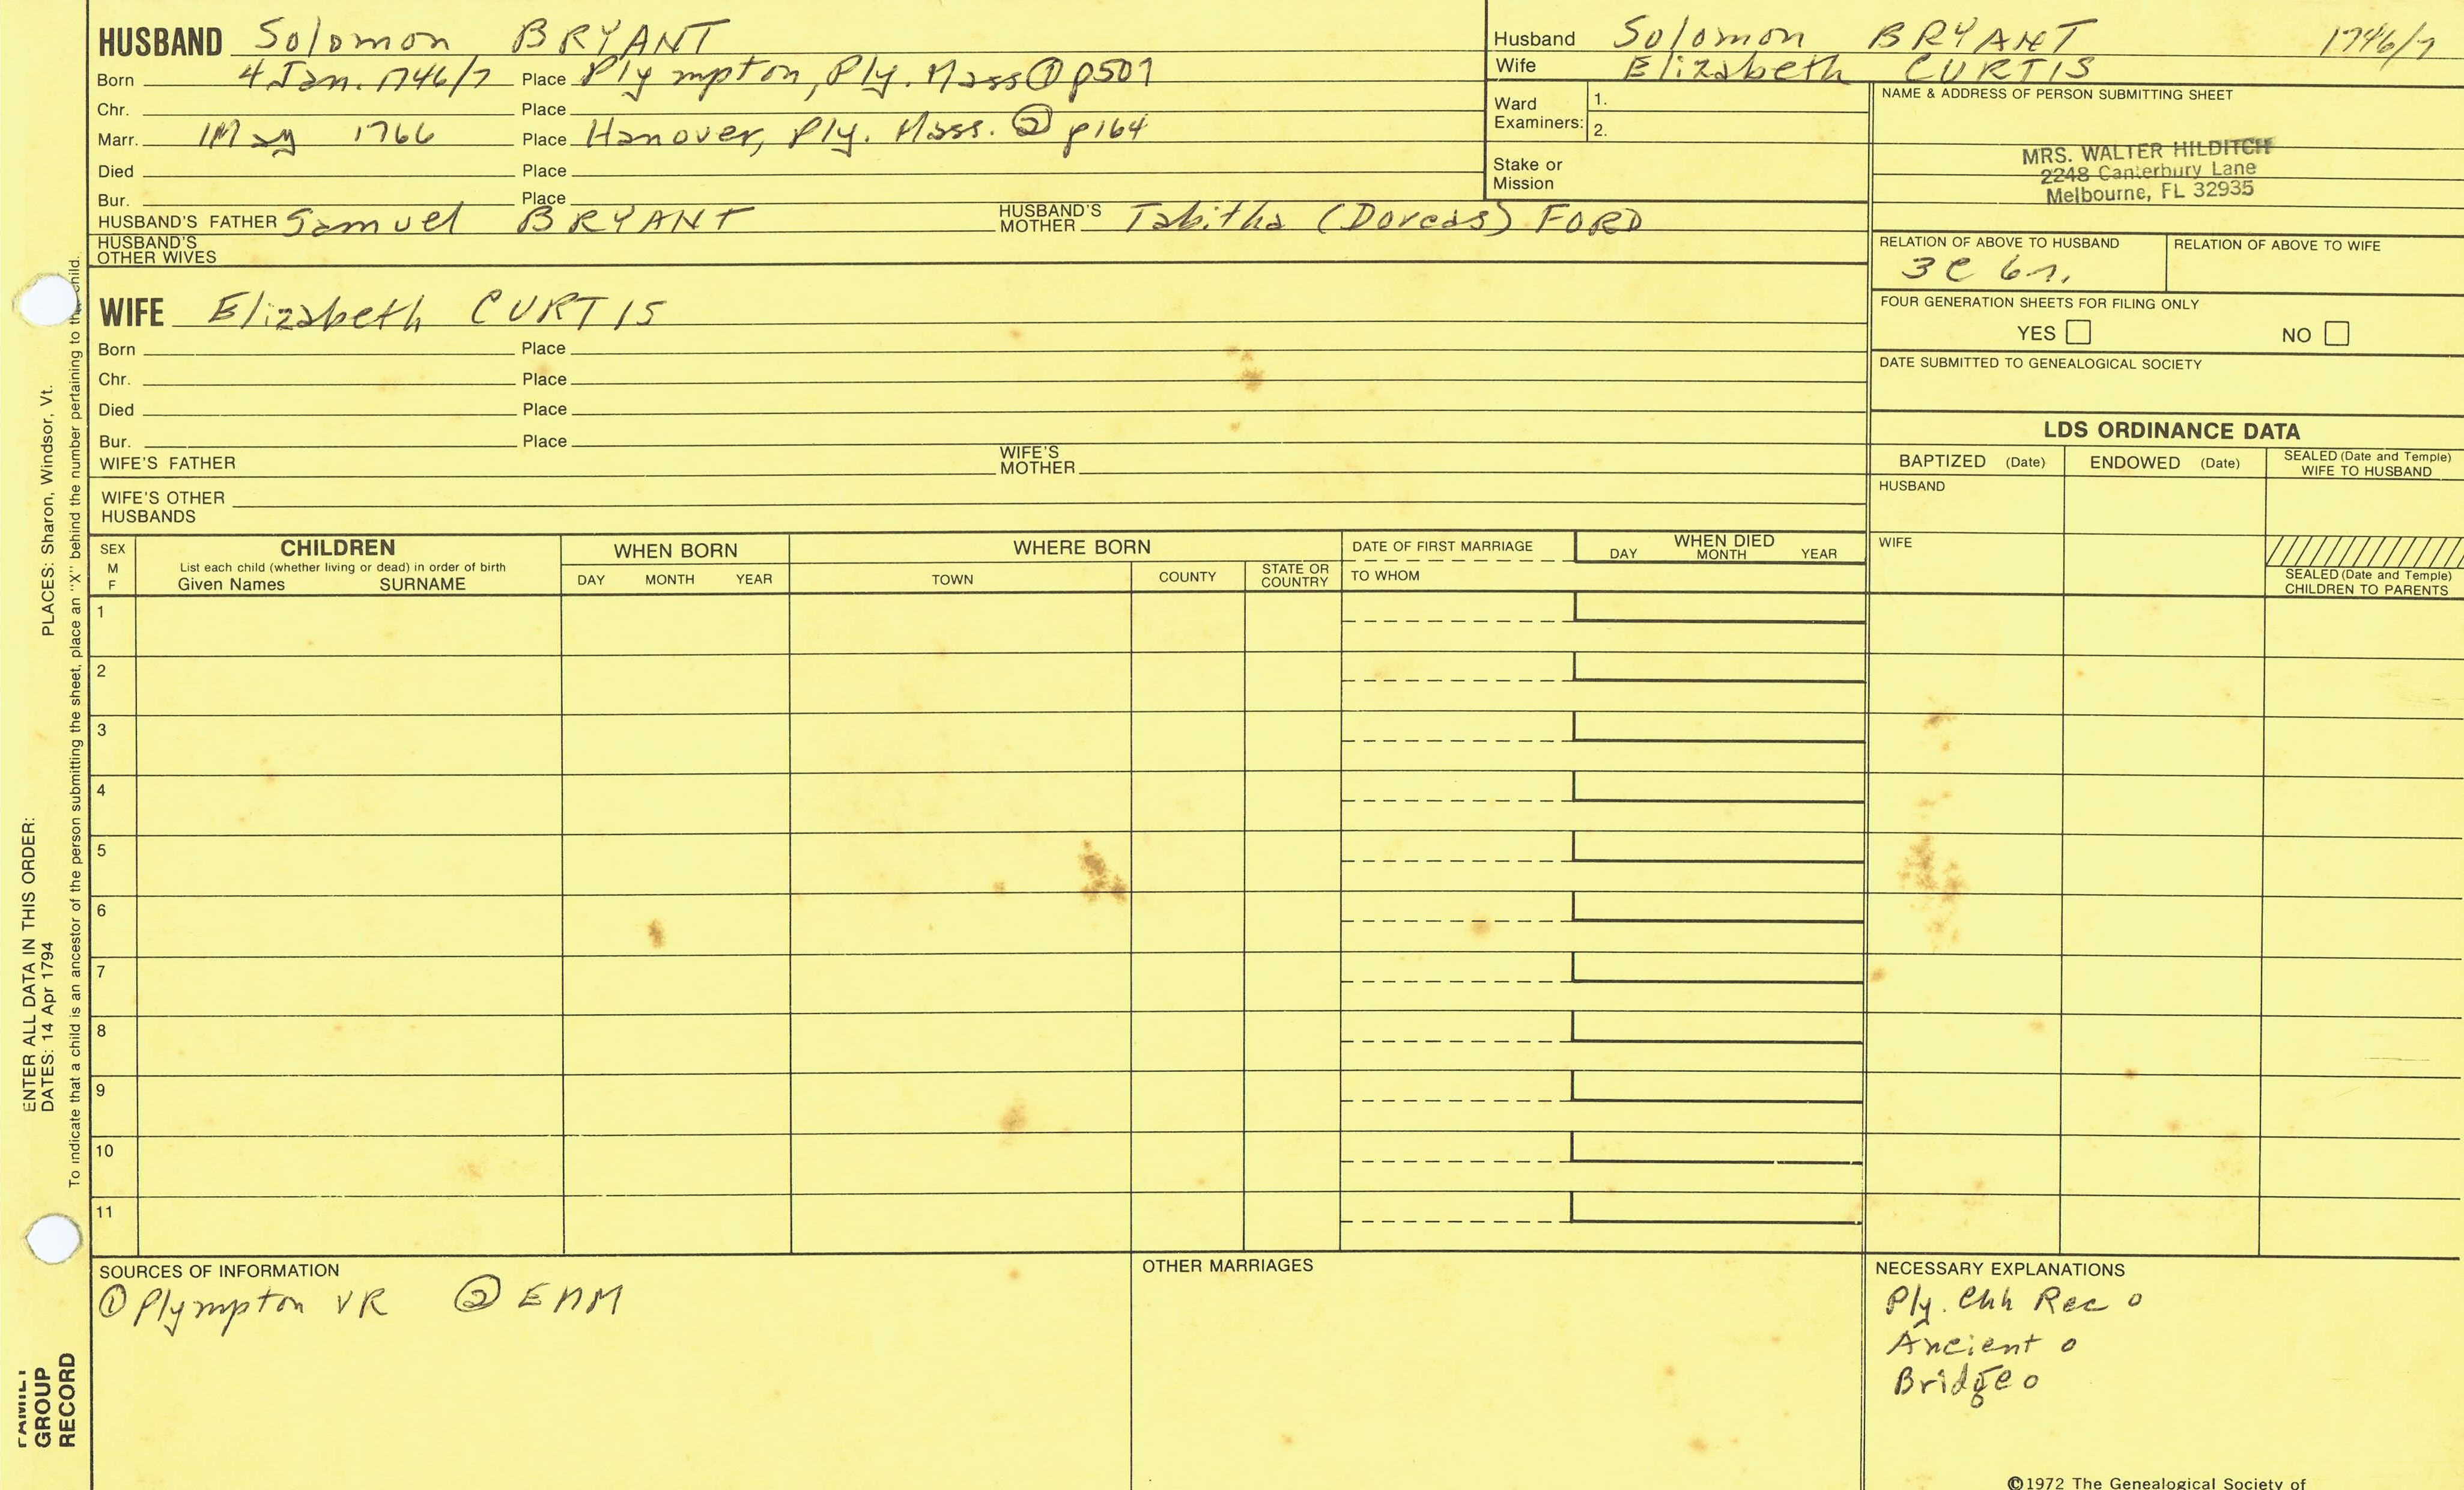 HUSBAND Solomon BRYANT
Born 4 Jan. 1746/7 Place Plympton, Ply. Mass ① p507
Chr. Place
Marr. 1 May 1766 Place Hanover, Ply. Mass. ② p164
Died Place
Bur. Place
HUSBAND'S FATHER Samuel BRYANT HUSBAND'S MOTHER Tabitha (Dorcas) FORD
HUSBAND'S OTHER WIVES
Husband Solomon BRYANT 1746/7
Wife Elizabeth CURTIS
Ward Examiners: 1.
2.
Stake or Mission
NAME & ADDRESS OF PERSON SUBMITTING SHEET
MRS. WALTER HILDITCH
2248 Canterbury Lane
Melbourne, FL 32935
RELATION OF ABOVE TO HUSBAND RELATION OF ABOVE TO WIFE
3C 6r.
FOUR GENERATION SHEETS FOR FILING ONLY
YES NO
DATE SUBMITTED TO GENEALOGICAL SOCIETY
WIFE Elizabeth CURTIS
Born Place
Chr. Place
Died Place
Bur. Place
WIFE'S FATHER WIFE'S MOTHER
WIFE'S OTHER HUSBANDS
LDS ORDINANCE DATA
BAPTIZED (Date) ENDOWED (Date) SEALED (Date and Temple) WIFE TO HUSBAND
HUSBAND
WIFE
SEALED (Date and Temple) CHILDREN TO PARENTS
SEX M F
CHILDREN
List each child (whether living or dead) in order of birth
Given Names SURNAME
WHEN BORN
DAY MONTH YEAR
WHERE BORN
TOWN COUNTY STATE OR COUNTRY
DATE OF FIRST MARRIAGE
TO WHOM
WHEN DIED
DAY MONTH YEAR
1
2
3
4
5
6
7
8
9
10
11
SOURCES OF INFORMATION
① Plympton VR ② EAM
OTHER MARRIAGES
NECESSARY EXPLANATIONS
Ply. Chh Rec o
Ancient o
Bridge o
©1972 The Genealogical Society of
ENTER ALL DATA IN THIS ORDER:
DATES: 14 Apr 1794 PLACES: Sharon, Windsor, Vt.
To indicate that a child is an ancestor of the person submitting the sheet, place an "X" behind the number pertaining to that child.
FAMILY
GROUP
RECORD